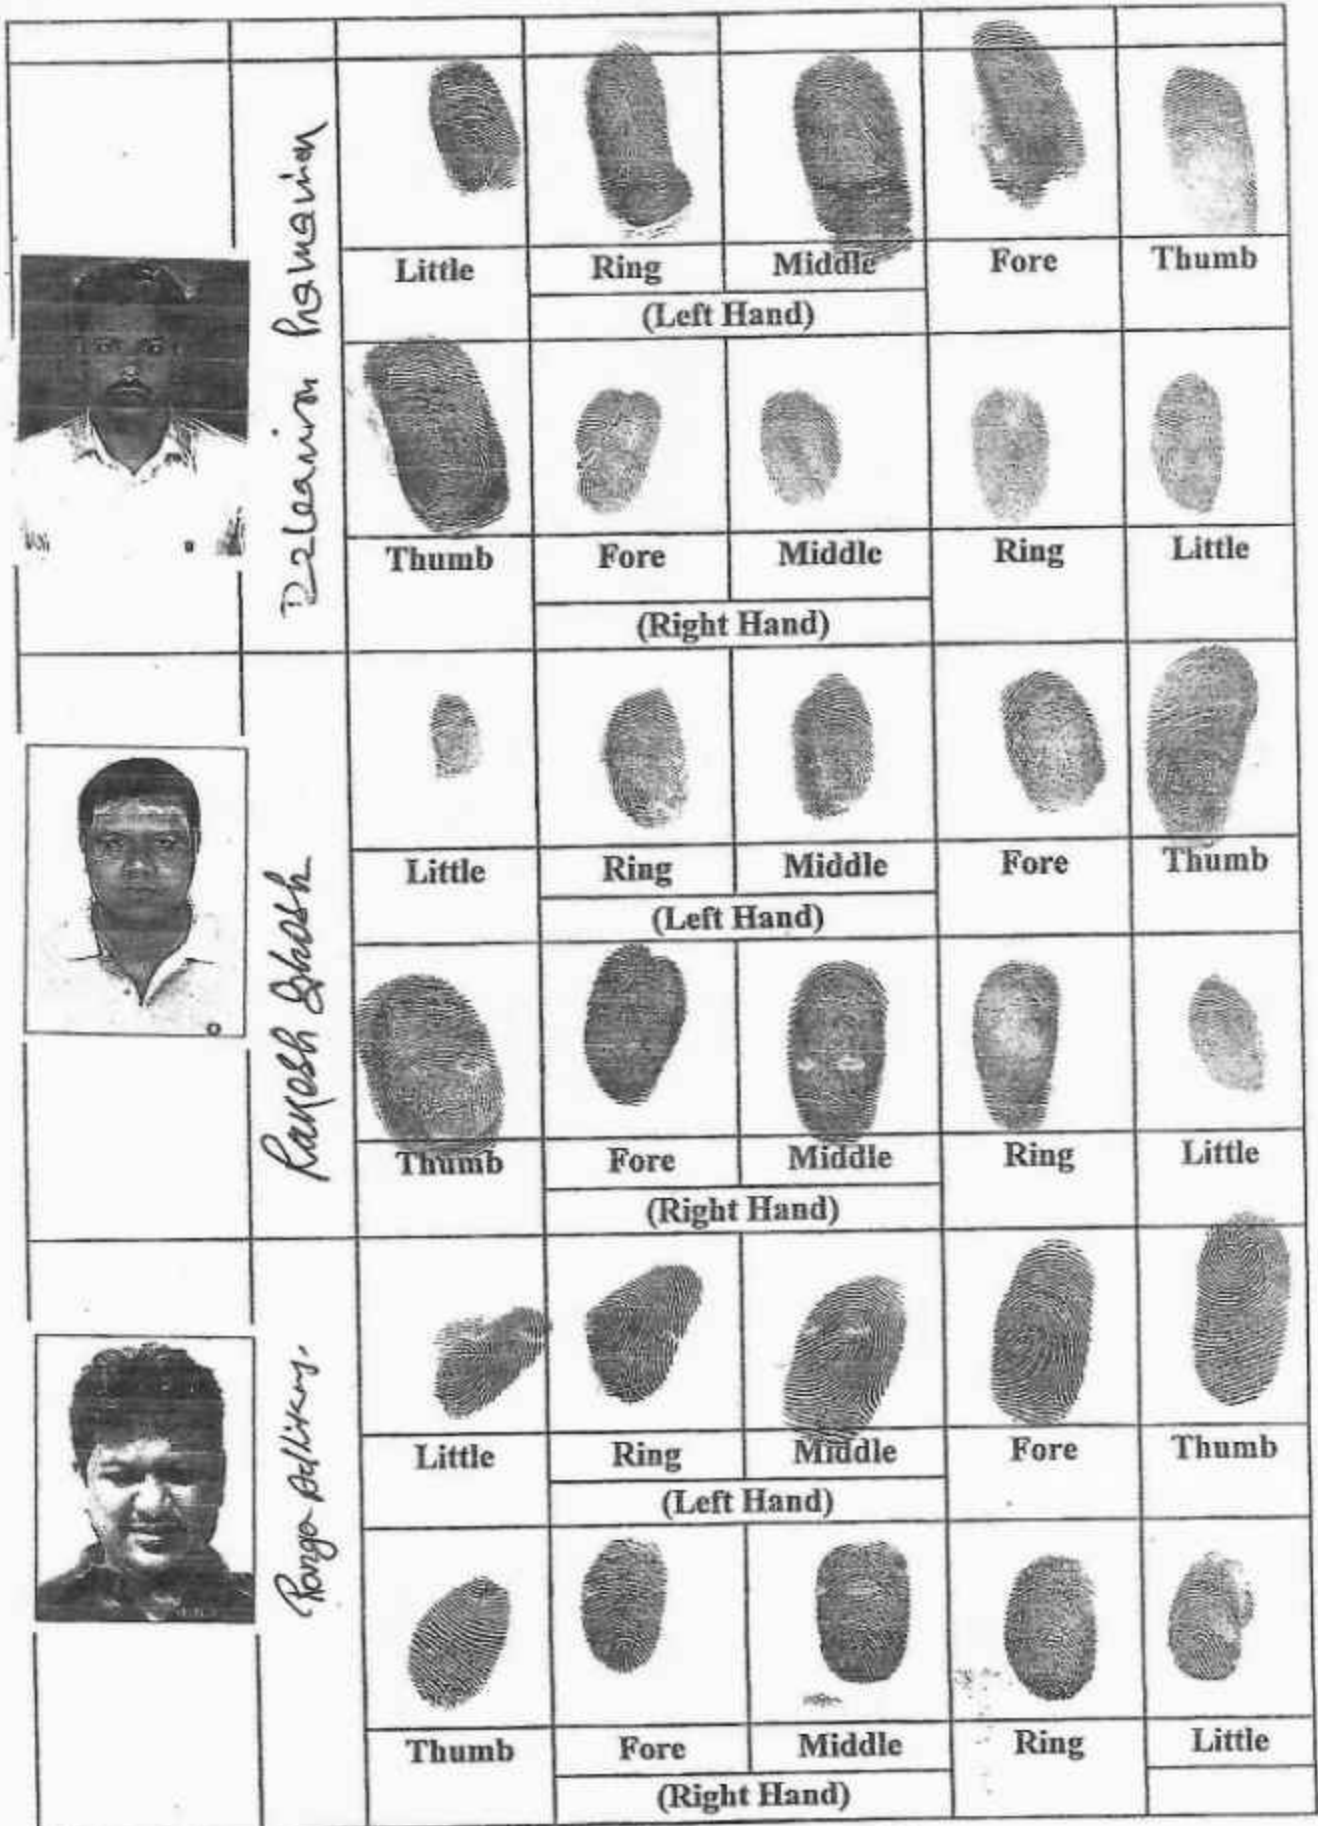 Little Ring Middle Fore Thumb
(Left Hand)
Thumb Fore Middle Ring Little
(Right Hand)
Rakesh Ghosh
Little Ring Middle Fore Thumb
(Left Hand)
Thumb Fore Middle Ring Little
(Right Hand)
Little Ring Middle Fore Thumb
(Left Hand)
Thumb Fore Middle Ring Little
(Right Hand)